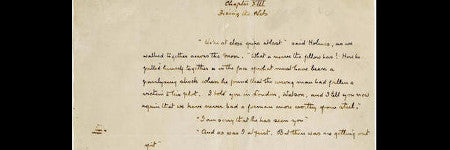 Chapter XIII
Fixing the Nets
"We're at close grips at last" said Holmes, as we
walked together across the moor. "What a nerve the fellow has! How he
pulled himself together in the face of what must have been a
paralyzing shock when he found that the wrong man had fallen a
victim to his plot. I told you in London, Watson, and I tell you now
again that we have never had a foeman more worthy of our steel."
"I am sorry that he has seen you"
"And so was I at first. But there was no getting out
of it"